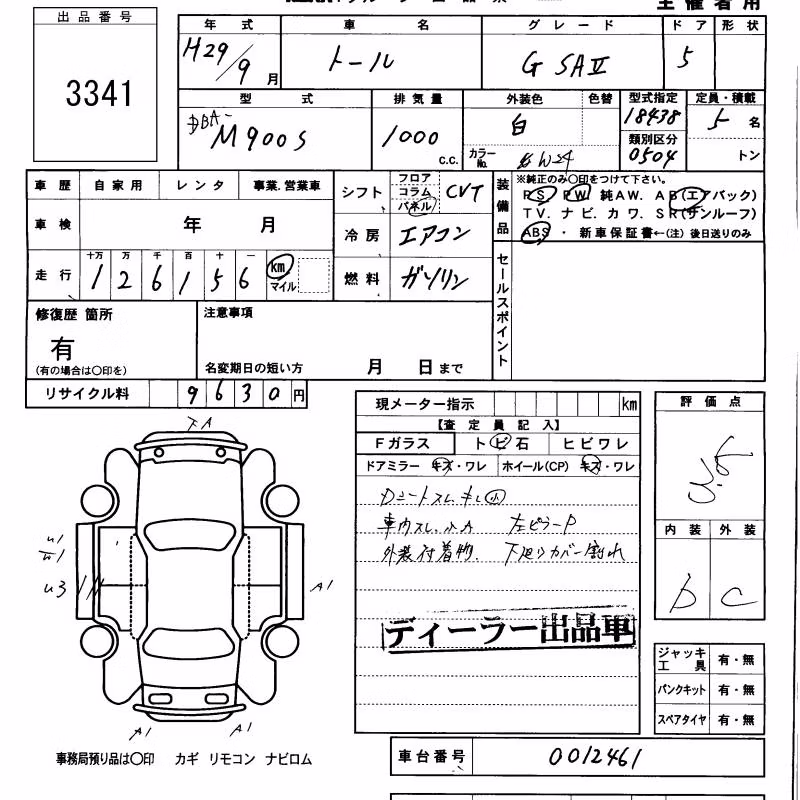 主催者用
出品番号
3341
年式 車名 グレード ドア 形状
H29/9月 トール G SAⅡ 5
型式 排気量 外装色 色替 型式指定 定員・積載
DBA-M900S 1000 c.c. 白 18438 5名
カラーNo. W24 類別区分 0504 トン
車歴 自家用 レンタ 事業.営業車
シフト フロア コラム パネル CVT
装備品 ※純正のみ〇印をつけて下さい。
PS PW 純AW. AB(エアバック)
TV. ナビ. カワ. SR(サンルーフ)
ABS ・ 新車保証書←(注) 後日送りのみ
車検 年 月
冷房 エアコン
走行 十万 万 千 百 十 一
1 2 6 1 5 6 km マイル
燃料 ガソリン
セールスポイント
修復歴 箇所
有
(有の場合は〇印を)
注意事項
名変期日の短い方 月 日まで
リサイクル料 9630円
現メーター指示 km
【査定員記入】
Fガラス トビ石 ヒビワレ
ドアミラー キズ・ワレ ホイール(CP) キズ・ワレ
Dシートスレ キレ小
車内スレ.小A 左ピラーP
外装付着物. 下廻りカバー割れ
ディーラー出品車
評価点
3.5
内装 外装
D C
ジャッキ工具 有・無
パンクキット 有・無
スペアタイヤ 有・無
下A
U1
U3
A1
A1 A1
事務局預り品は〇印 カギ リモコン ナビロム
車台番号 0012461